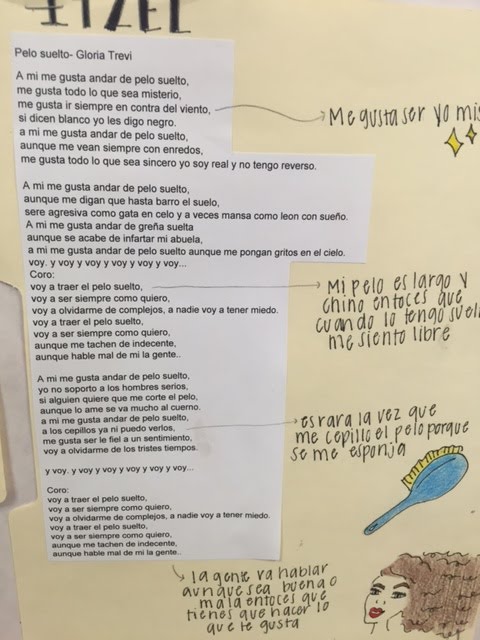 ITZEL
Pelo suelto- Gloria Trevi
A mi me gusta andar de pelo suelto,
me gusta todo lo que sea misterio,
me gusta ir siempre en contra del viento,
si dicen blanco yo les digo negro.
a mi me gusta andar de pelo suelto,
aunque me vean siempre con enredos,
me gusta todo lo que sea sincero yo soy real y no tengo reverso.
Me gusta ser yo
A mi me gusta andar de pelo suelto,
aunque me digan que hasta barro el suelo,
sere agresiva como gata en celo y a veces mansa como leon con sueño.
A mi me gusta andar de greña suelta
aunque se acabe de infartar mi abuela,
a mi me gusta andar de pelo suelto aunque me pongan gritos en el cielo.
voy. y voy y voy y voy y voy y voy...
Coro:
voy a traer el pelo suelto,
voy a ser siempre como quiero,
voy a olvidarme de complejos, a nadie voy a tener miedo.
voy a traer el pelo suelto,
voy a ser siempre como quiero,
aunque me tachen de indecente,
aunque hable mal de mi la gente..
Mi pelo es largo y
chino entoces que
cuando lo tengo
me siento libre
A mi me gusta andar de pelo suelto,
yo no soporto a los hombres serios,
si alguien quiere que me corte el pelo,
aunque lo ame se va mucho al cuerno.
a mi me gusta andar de pelo suelto,
a los cepillos ya ni puedo verlos,
me gusta ser le fiel a un sentimiento,
voy a olvidarme de los tristes tiempos.
es rara la vez que
me cepillo el pelo porque
se me esponja
y voy. y voy y voy y voy y voy y voy...
Coro:
voy a traer el pelo suelto,
voy a ser siempre como quiero,
voy a olvidarme de complejos, a nadie voy a tener miedo.
voy a traer el pelo suelto,
voy a ser siempre como quiero,
aunque me tachen de indecente,
aunque hable mal de mi la gente..
la gente va hablar
aunque sea bueno o
malo entoces que
tienes que hacer lo
que te gusta